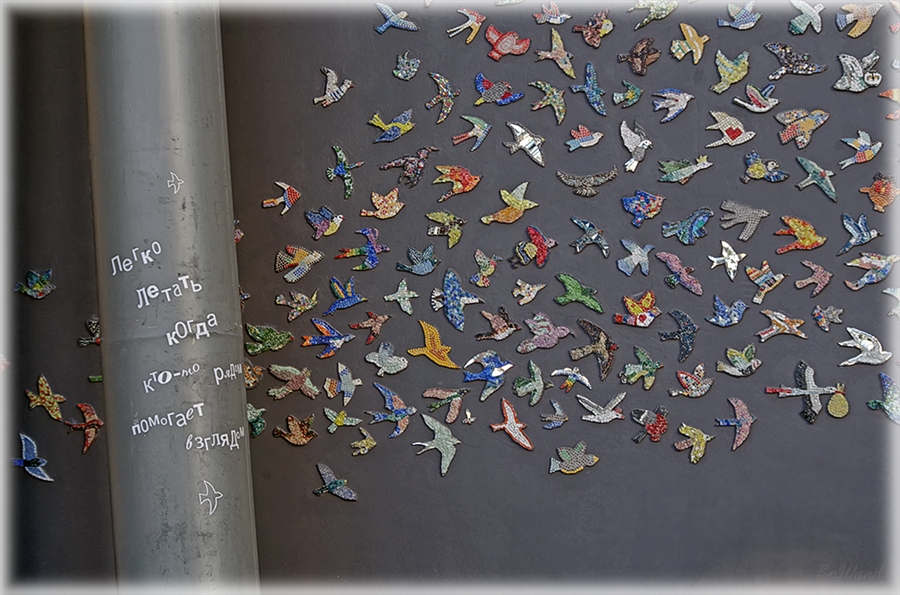 Легко
Летать
когда
кто-то рядом
помогает
взглядом